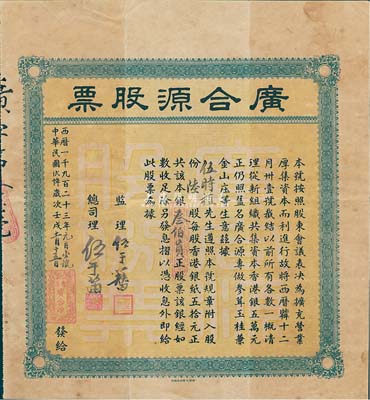 廣合源股票
本號按照股東會議表决為擴充營業
厚集資本而利進行故將西曆拾十二
月卅壹號截結以前所有各數一概清
理從新組織共集資本香港銀五萬元
正仍照舊名廣合源專做參茸玉桂兼
金山庄等生意茲據
伍時順先生遵照本號規章附入股
份陸股每股香港銀紙五拾元正
共該本銀叁佰員正股票該銀經如
數收足除另發息摺以憑收息外即給
此股票為據
監理
總司理
西曆一千九百二十三年元月壹號
中華民國
歲次壬戌十一月十五日
發給